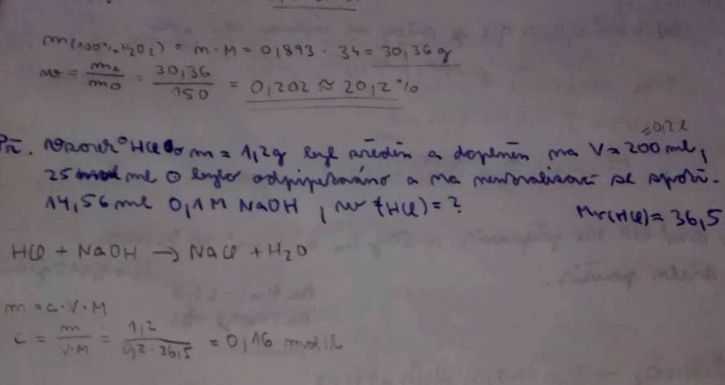 m(100% H₂O₂) = n·M = 0,893 · 34 = 30,36 g
w = m_s/m_o = 30,36/150 = 0,202 ≈ 20,2 %
= 0,2 l
Př. Vzorek HCl o m = 1,2g byl zředěn a doplněn na V = 200 ml,
25 ml bylo odpipetováno a na neutralizaci se spotř.
14,56 ml 0,1M NaOH, w (HCl) = ?
Mr(HCl) = 36,5
HCl + NaOH → NaCl + H₂O
m = c·V·M
c = m/V·M = 1,2/0,2·36,5 = 0,16 mol/l